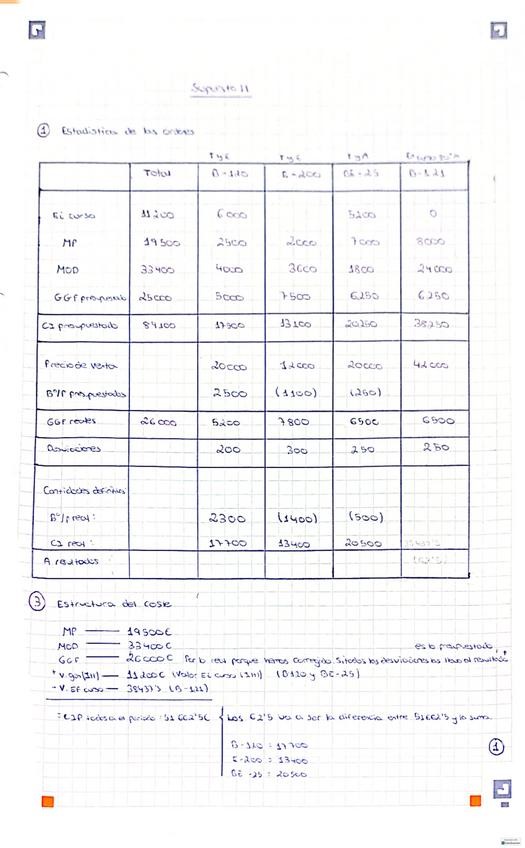 Supuesto 11
① Estadística de las ordenes
T y E T y E T y A En curso
Total B-120 E-200 BE-25 B-121
Ei curso 11200 6000 5200 0
MP 19500 2500 2000 7000 8000
MOD 33400 4000 3600 1800 24000
GGF presupuestado 25000 5000 7500 6250 6250
CI presupuestado 84100 17500 13100 20250 38250
Precio de venta 20000 12000 20000 42000
Bº/P presupuestados 2500 (1100) (250)
GGF reales 26000 5200 7800 6500 6500
Desviaciones 200 300 250 250
Cantidades definitivas
Bº/P real: 2300 (1400) (500)
CI real: 17700 13400 20500
A resultados (62'5)
③ Estructura del coste
MP — 19500€
MOD — 33400€ es lo presupuestado,
GGF — 26000€ Por lo real porque hemos corregido. Si todas las desviaciones las llevo al resultado
+ V. — 11200€ (Valor Ei curso (1/11) (B120 y BE-25)
- V. EF curso — 38437'5 (B-121)
= CIP todas a el periodo: 51662'5€ Los 62'5 va a ser la diferencia entre 51662'5 y la suma.
B-120 = 17700
E-200 = 13400
BE-25 = 20500
①